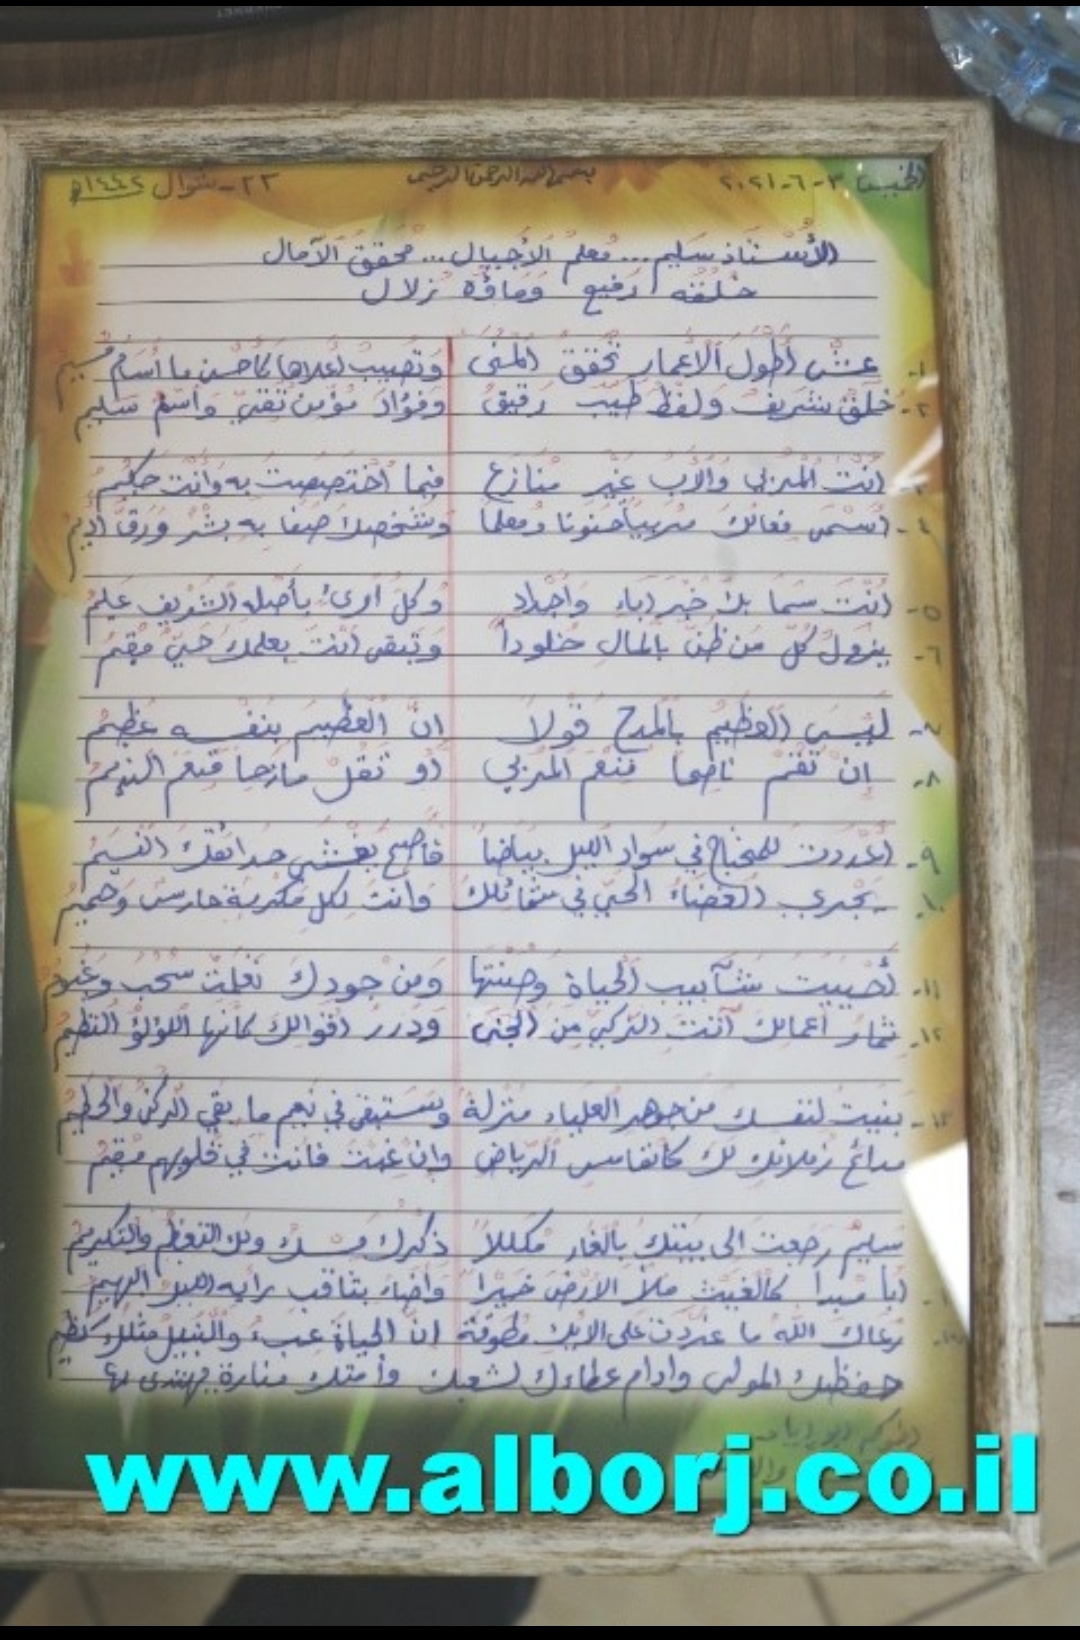 الخميس ٣-٦-٢٠٢١ بسم الله الرحمن الرحيم ٢٢-شوال ١٤٤٢
الأُسْتاذ سَليم... مُعلم الأجيال... محقق الآمال
خُلُقُه رفيع وماؤه زلال
١- عِشْ أطول الأعمار تُحَقق المُنى وَتصيب أعلاها كأحسن ما
٢- خلق شريف ولفظ طيب رقيق وفؤاد مؤمن تقي واسم سليم
أنت المربي والأب غير منازع فيما أختصصت به وأنت حكيم
٤- مربيا حنونا ومعلما وشخصك صفا به بشر ورق أديم
٥- أنت سما بك خير آباء وأجداد وكل امرئ بأصله الشريف عليم
٦- يزول كل من ظن بالمال خلوداً وتبقى أنت بعلمك حيّ مقيم
٧- ليس العظيم بالمدح قولا ان العظيم بنفسه عظيم
٨- إن تقم ناصحا فنعم المربي أو تقل مازحا فنعم النديم
٩- أعددت للمحتاج في سواد الليل بياضا فأصبح يغشى حدائقك النسيم
١٠- يجري الحي في شمائلك وأنت لكل مكرمة حارس وحميم
١١- أحييت شآبيب الحياة وصنتها ومن جودك سحب وغيوم
١٢- ثمار أعمالك أتت الزكي من الجنى ودرر أقوالك كأنها اللؤلؤ النظيم
١٣- بنيت لنفسك من جوهر العلياء منزلة وستبقى في نعيم ما بقي الركن والحطيم
مدائح زملائك لك كأنفاس الرياض وإن غبت فأنت في قلوبهم مقيم
سليم رجعت الى بيتك بالغار مكللاً ذكرك مسك ولك التعظيم والتكريم
كالغيث ملأ الأرض خيراً وأضاء بثاقب رأيه الليل البهيم
رعاك الله ما غردت على الأيك مطوقة ان الحياة عبء والنبيل مثلك كظيم
حفظك المولى وأدام عطاءك لشعبك وأمتك منارة يهتدى بها
www.alborj.co.il